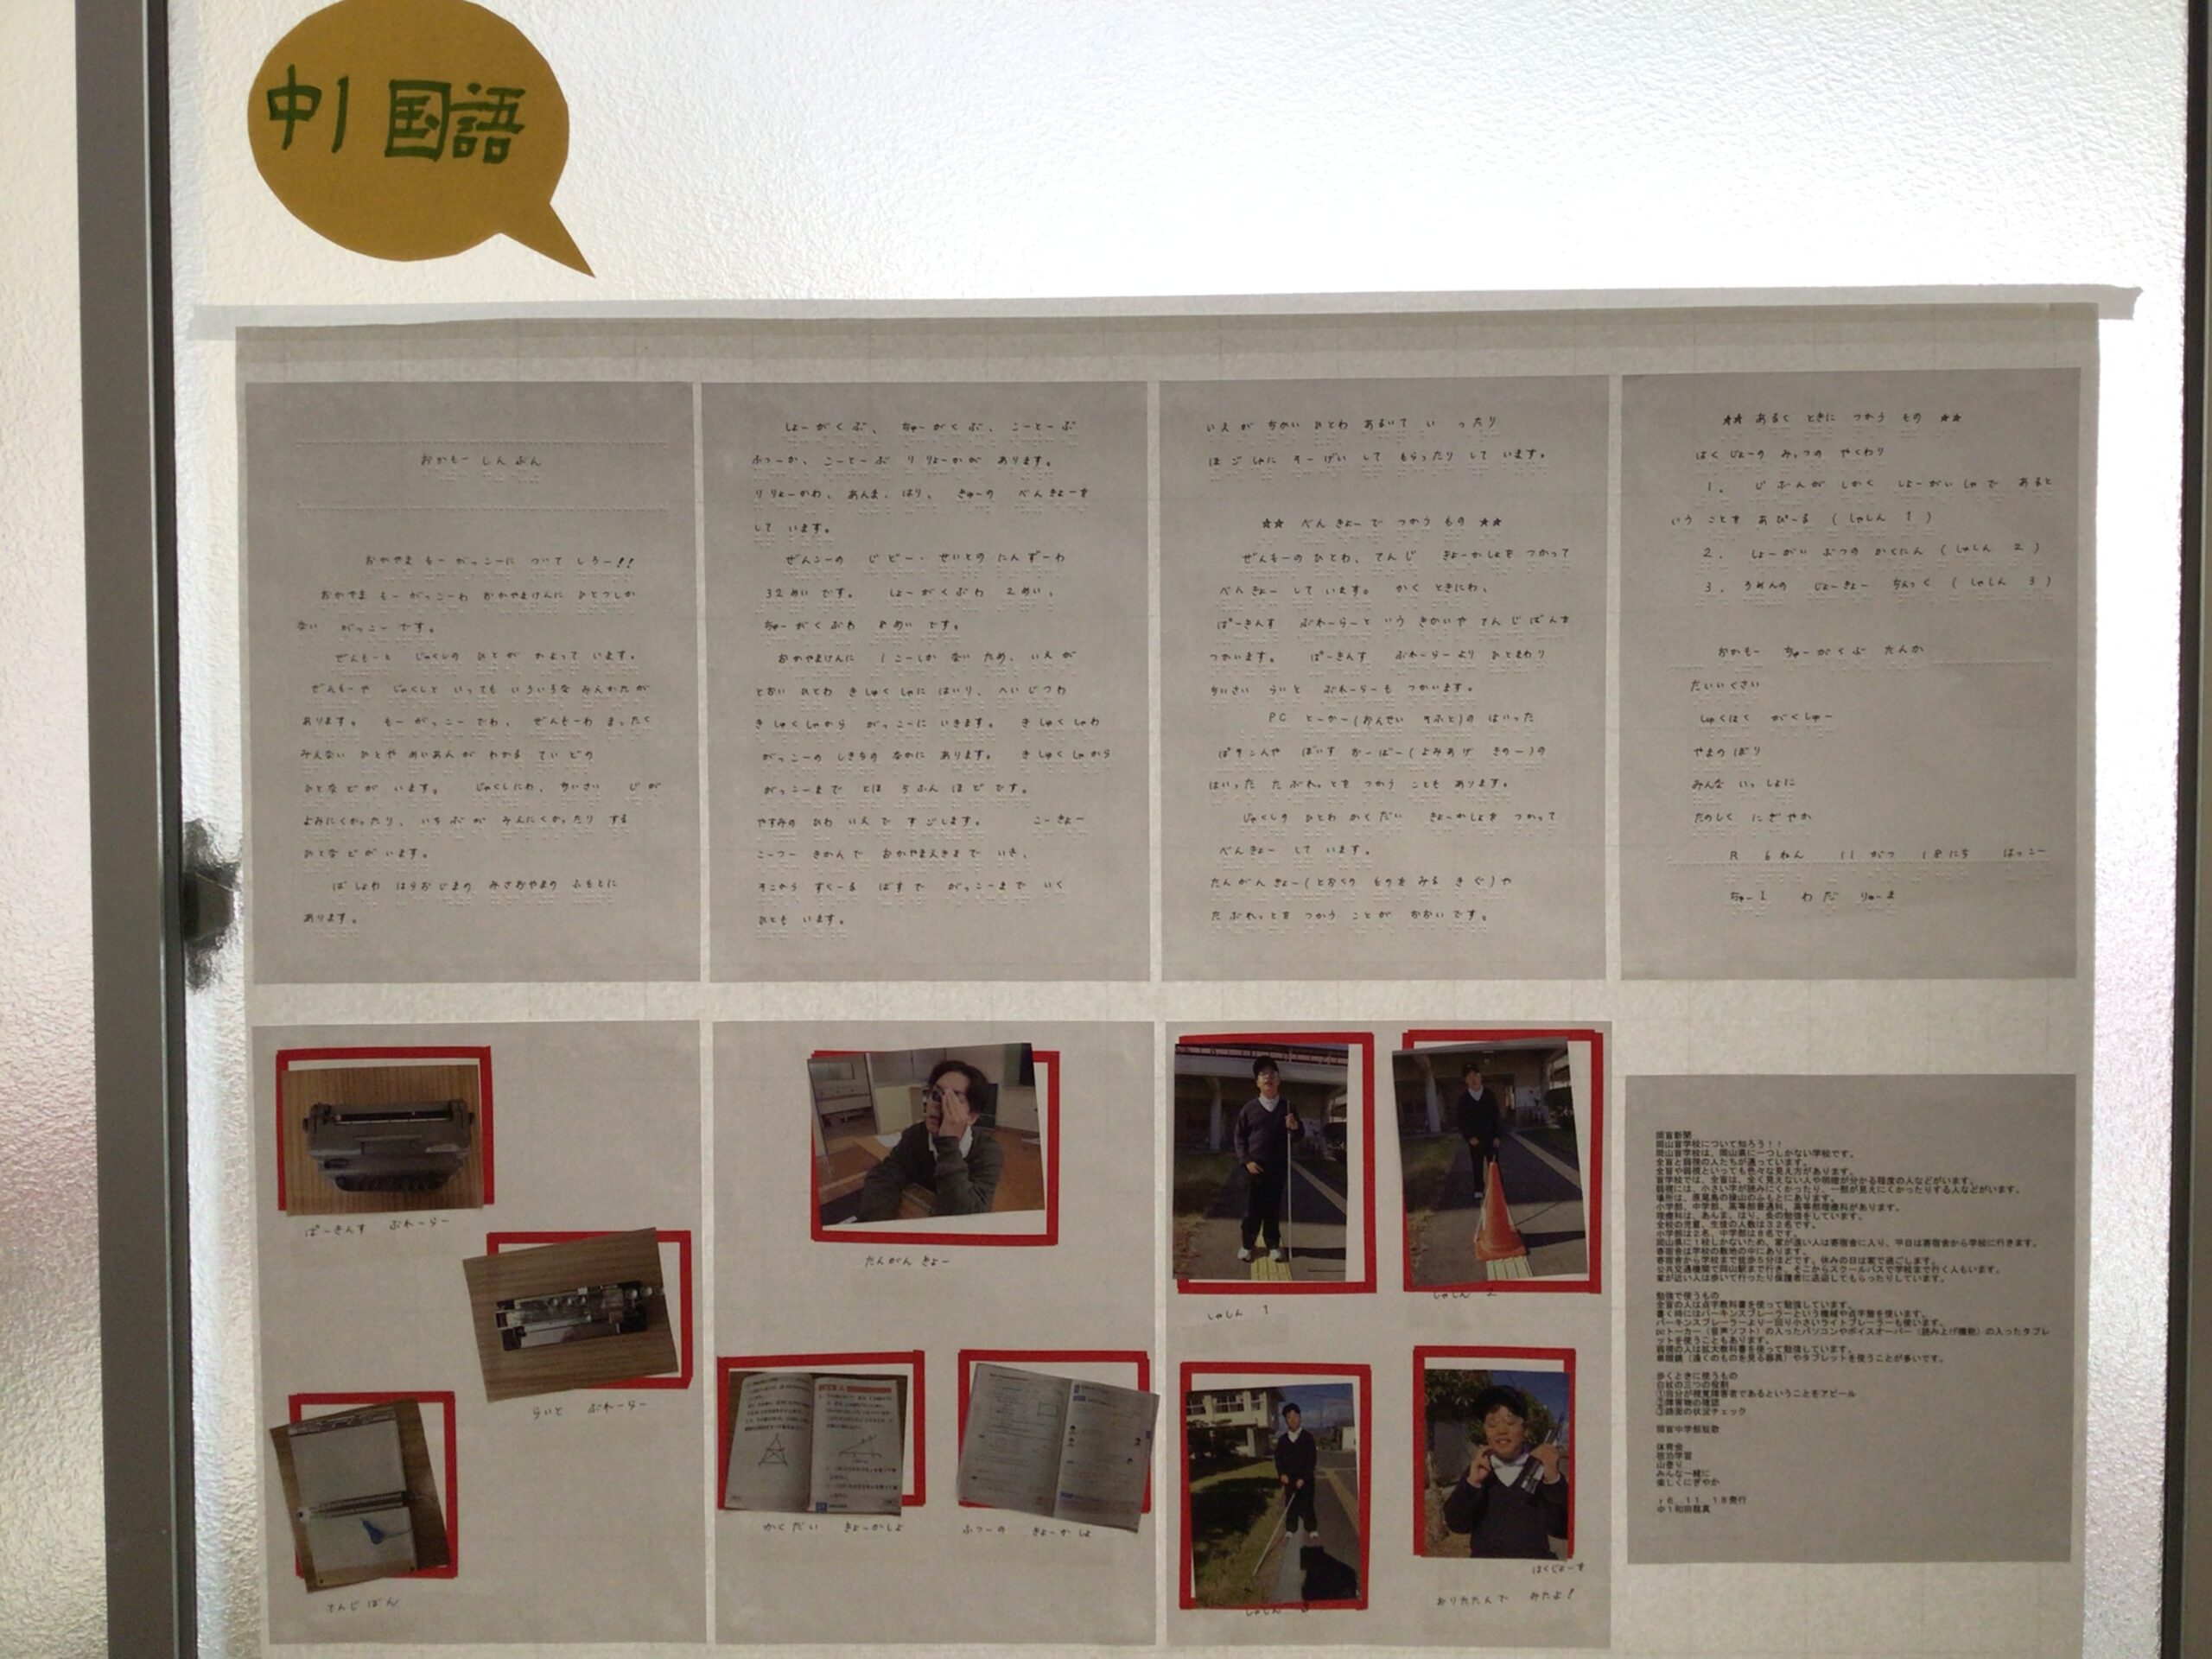 中1 国語
おかもー しんぶん
おかやま もー がっこーに ついて しろー!!
おかやま もー がっこーわ おかやまけんに ひとつしか
ない がっこー です。
ぜんもーと じゃくしの ひとが かよって います。
ぜんもーや じゃくしと いっても いろいろな みえかたが
あります。 もー がっこー でわ、 ぜんもーわ まったく
みえない ひとや めいあんが わかる ていどの
ひとなどが います。 じゃくしにわ、 ちいさい じが
よみにくかったり、 いちぶが みえにくかったり する
ひとなどが います。
ばしょわ はらおじまの みさおやまの ふもとに
あります。
しょーがくぶ、 ちゅーがくぶ、 こーとーぶ
ふつーか、 こーとーぶ りりょーかが あります。
りりょーかわ、 あんま、 はり、 きゅーの べんきょーを
して います。
ぜんこーの じどー・ せいとの にんずーわ
32めい です。 しょーがくぶわ 2めい、
ちゅーがくぶわ 8めい です。
おかやまけんに 1こーしか ない ため、 いえが
とおい ひとわ きしゅくしゃに はいり、 へいじつわ
きしゅくしゃから がっこーに いきます。 きしゅくしゃわ
がっこーの しきちの なかに あります。 きしゅくしゃから
がっこーまで とほ 5ふん ほど です。
やすみの ひわ いえで すごします。 こーきょー
こーつー きかんで おかやまえきまで いき、
そこから すくーる ばすで がっこーまで いく
ひとも います。
いえが ちかい ひとわ あるいて いったり
ほごしゃに そーげい して もらったり して います。
☆☆ べんきょーで つかう もの ☆☆
ぜんもーの ひとわ、 てんじ きょーかしょを つかって
べんきょー して います。 かく ときにわ、
ぱーきんす ぶれーらーと いう きかいや てんじばんを
つかいます。 ぱーきんす ぶれーらーより ひとまわり
ちいさい らいと ぶれーらーも つかいます。
PC とーかー(おんせい そふと)の はいった
ぱそこんや ぼいす おーばー(よみあげ きのー)の
はいった たぶれっとを つかう ことも あります。
じゃくしの ひとわ かくだい きょーかしょを つかって
べんきょー して います。
たんがんきょー(とおくの ものを みる きぐ)や
たぶれっとを つかう ことが おおいです。
☆☆ あるく ときに つかう もの ☆☆
はくじょーの みっつの やくわり
1. じぶんが しかく しょーがいしゃで あると
いう ことを あぴーる (しゃしん 1)
2. しょーがいぶつの かくにん (しゃしん 2)
3. ろめんの じょーきょー ちぇっく (しゃしん 3)
おかもー ちゅーがくぶ たんか
たいいくさい
しゅくはく がくしゅー
やまのぼり
みんな いっしょに
たのしく にぎやか
R 6ねん 11がつ 18にち はっこー
ちゅー1 わだ りゅーま
ぱーきんす ぶれーらー
らいと ぶれーらー
てんじばん
たんがんきょー
かくだい きょーかしょ
ふつーの きょーかしょ
しゃしん 1
しゃしん 2
しゃしん 3
はくじょーを
おりたたんで みたよ!
岡盲新聞
岡山盲学校について知ろう!!
岡山盲学校は、岡山県に一つしかない学校です。
全盲と弱視の人たちが通っています。
全盲や弱視といっても色々な見え方があります。
盲学校では、全盲は、全く見えない人や明暗が分かる程度の人などがいます。
弱視には、小さい字が読みにくかったり、一部が見えにくかったりする人などがいます。
場所は、原尾島の操山のふもとにあります。
小学部、中学部、高等部普通科、高等部理療科があります。
理療科は、あんま、はり、灸の勉強をしています。
全校の児童、生徒の人数は32名です。
小学部は2名、中学部は8名です。
岡山県に1校しかないため、家が遠い人は寄宿舎に入り、平日は寄宿舎から学校に行きます。
寄宿舎は学校の敷地の中にあります。
寄宿舎から学校まで徒歩5分ほどです。休みの日は家で過ごします。
公共交通機関で岡山駅まで行き、そこからスクールバスで学校まで行く人もいます。
家が近い人は歩いて行ったり保護者に送迎してもらったりしています。
勉強で使うもの
全盲の人は点字教科書を使って勉強しています。
書く時にはパーキンスブレーラーという機械や点字盤を使います。
パーキンスブレーラーより一回り小さいライトブレーラーも使います。
pcトーカー(音声ソフト)の入ったパソコンやボイスオーバー(読み上げ機能)の入ったタブレ
ットを使うこともあります。
弱視の人は拡大教科書を使って勉強しています。
単眼鏡(遠くのものを見る器具)やタブレットを使うことが多いです。
歩くときに使うもの
白杖の三つの役割
①自分が視覚障害者であるということをアピール
②障害物の確認
③路面の状況チェック
岡盲中学部短歌
体育会
宿泊学習
山登り
みんな一緒に
楽しくにぎやか
r6.11.18発行
中1和田龍真